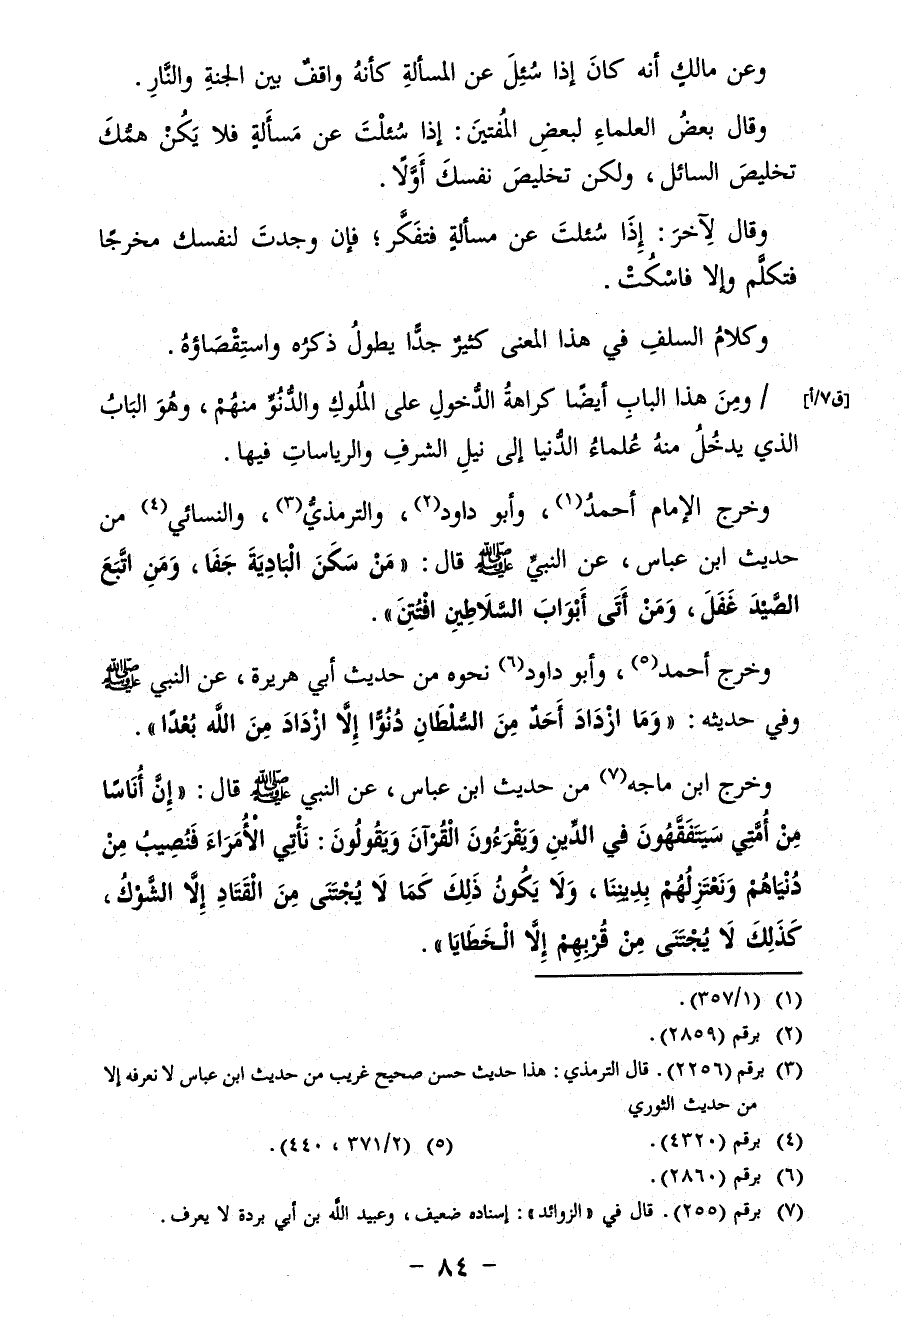 وعن مالكٍ أنه كانَ إذا سُئِلَ عن المسألةِ كأنهُ واقفٌ بين الجنةِ والنَّارِ .
وقال بعضُ العلماءِ لبعضِ المُفتينَ : إذا سُئلْتَ عن مَسأَلةٍ فلا يَكُنْ همُّكَ
تخليصَ السائل ، ولكن تخليصَ نفسكَ أَوَّلًا .
وقال لِآخرَ : إِذَا سُئلتَ عن مسألةٍ فتفَكَّر ؛ فإن وجدتَ لنفسك مخرجًا
فتكلَّم وإلا فاسْكُتْ .
وكلامُ السلفِ في هذا المعنى كثيرٌ جدًّا يطولُ ذكرُه واستِقْصَاؤهُ .
[ق٧/أ] / ومِنَ هذا البابِ أيضًا كراهةُ الدُّخولِ على المُلوكِ والدُّنُوِّ منهُمْ ، وهُوَ البَابُ
الذي يدخُلُ منهُ عُلماءُ الدُّنيا إلى نيلِ الشرفِ والرياساتِ فيها .
وخرج الإمام أحمدُ(١) ، وأبو داود(٢) ، والترمذيُّ(٣) ، والنسائي(٤) من
حديث ابن عباس ، عن النبيِّ ﷺ قال : «مَنْ سَكَنَ الْبَادِيَةَ جَفَا ، وَمَنِ اتَّبَعَ
الصَّيْدَ غَفَلَ ، وَمَنْ أَتَى أَبْوَابَ السَّلَاطِينِ افْتُتِنَ» .
وخرج أحمد(٥) ، وأبو داود(٦) نحوه من حديث أبي هريرة ، عن النبي ﷺ
وفي حديثه : «وَمَا ازْدَادَ أَحَدٌ مِنَ السُّلْطَانِ دُنُوًّا إِلَّا ازْدَادَ مِنَ اللَّه بُعْدًا» .
وخرج ابن ماجه(٧) من حديث ابن عباس ، عن النبي ﷺ قال : «إِنَّ أُنَاسًا
مِنْ أُمَّتِي سَيَتَفَقَّهُونَ في الدِّينِ وَيَقْرَءُونَ الْقُرْآنَ وَيَقُولُونَ : نَأْتِي الْأُمَرَاءَ فَنُصِيبُ مِنْ
دُنْيَاهُمْ وَنَعْتَزِلُهُمْ بِدِينِنَا ، وَلَا يَكُونُ ذَلِكَ كَمَا لَا يُجْتَنَى مِنَ الْقَتَادِ إِلَّا الشَّوْكُ ،
كَذَلِكَ لَا يُجْتَنَى مِنْ قُرْبِهِمْ إِلَّا الْخَطَايَا» .
(١) (٣٥٧/١) .
(٢) برقم (٢٨٥٩) .
(٣) برقم (٢٢٥٦) . قال الترمذي : هذا حديث حسن صحيح غريب من حديث ابن عباس لا نعرفه إلا
من حديث الثوري
(٤) برقم (٤٣٢٠) . (٥) (٣٧١/٢ ، ٤٤٠) .
(٦) برقم (٢٨٦٠) .
(٧) برقم (٢٥٥) . قال في «الزوائد» : إسناده ضعيف ، وعبيد اللَّه بن أبي بردة لا يعرف .
- ٨٤ -